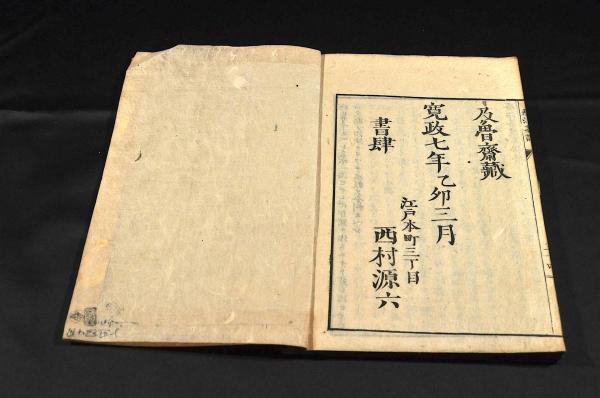 及魯齋藏
寛政七年乙卯三月
書肆
江戸本町三丁目
西村源六